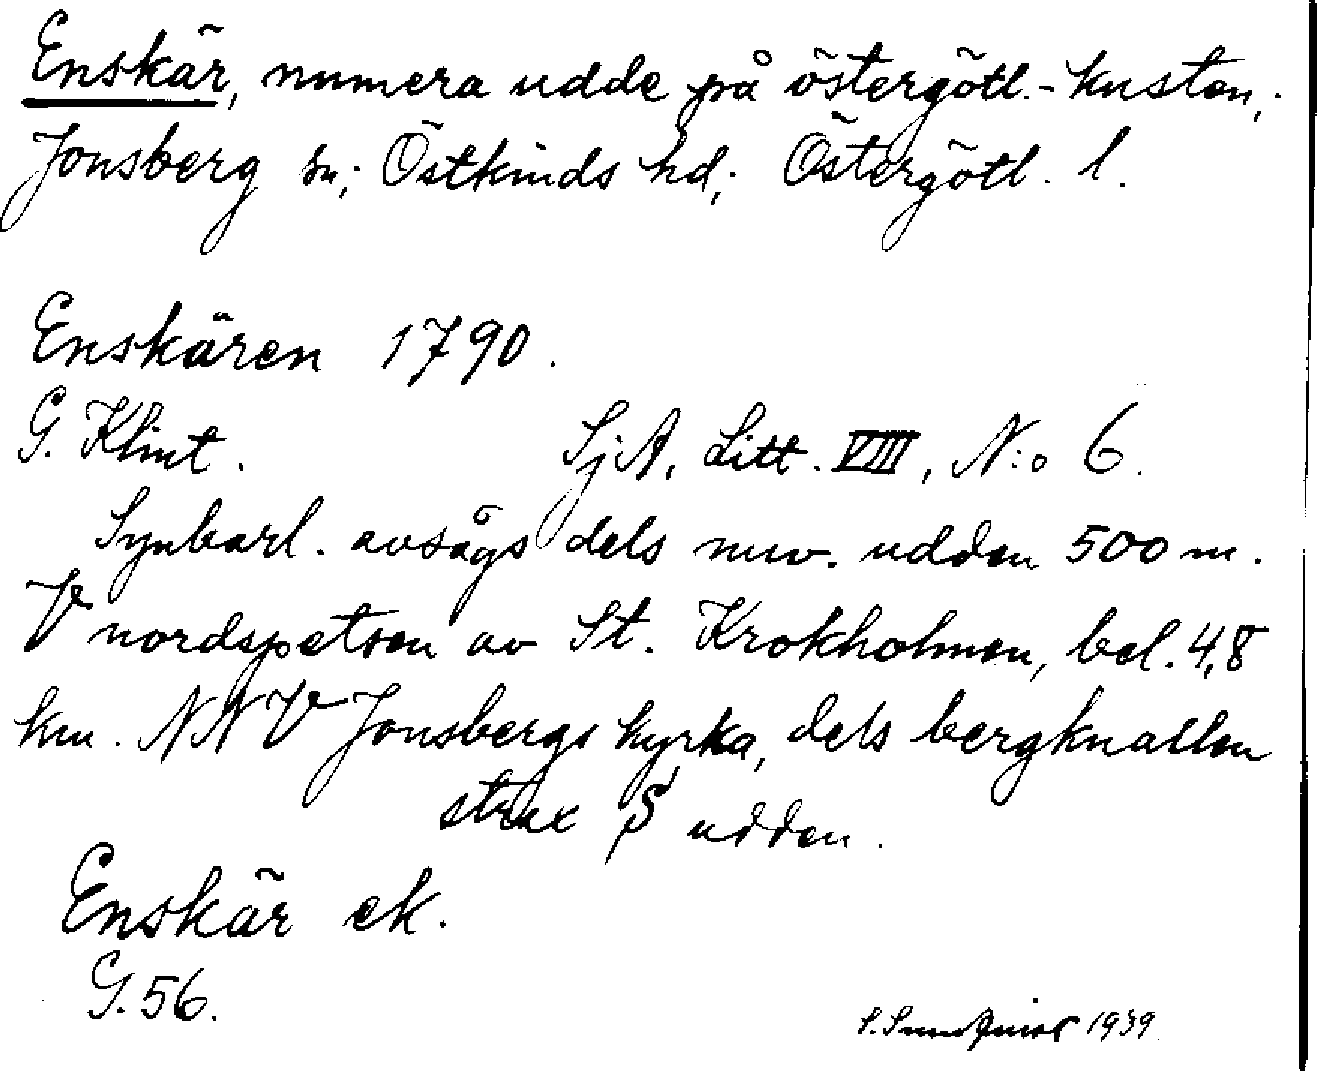 Enskär, numera udde på östergötl.-kusten,
Jonsberg sn; Östkinds hd; Östergötl. l.
Enskären 1790.
G. Klint. SjA, Litt. VIII, N:o 6.
Synbarl. avsågs dels nuv. udden 500 m.
V nordspetsen av St. Krokholmen, bel. 4,8
km. NNV Jonsbergs kyrka, dels bergknallen
strax S udden.
Enskär ek.
G. 56.
S. Sundquist 1939